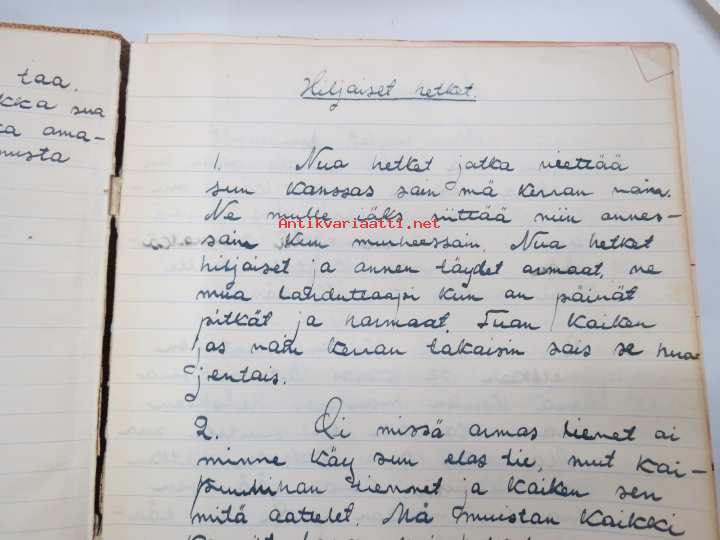 taa.
kka sua
ka ama-
musta
Hiljaiset hetket.
1. Nua hetket jotka viettää
sun kanssas sain mä kerran näin.
Ne mulle iäks riittää niin onnes-
sain kun murheessain. Nua hetket
hiljaiset ja onnen täydet armaat, ne
mua lohduttaapi kun on päivät
pitkät ja harmaat. Tuon kaiken
jos näin kerran takaisin sais se hua
jentais.
2. Oi missä armas lienet ai
minne käy sun elos tie, mut kai-
puuni han tiennet ja kaiken sen
mitä aattelet. Mä muistan kaikki
Antikvariaatti.net